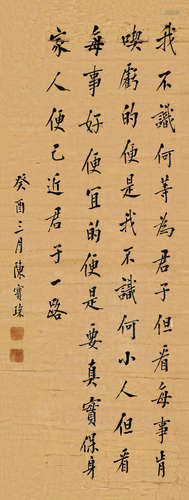 我不識何等為君子但看每事肯
喫虧的便是我不識何小人但看
每事好便宜的便是要真實保身
家人便已近君子一路
癸酉三月陳寶琛